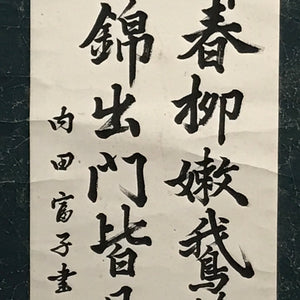 春柳嫩鵞
錦出門皆
内田富子書